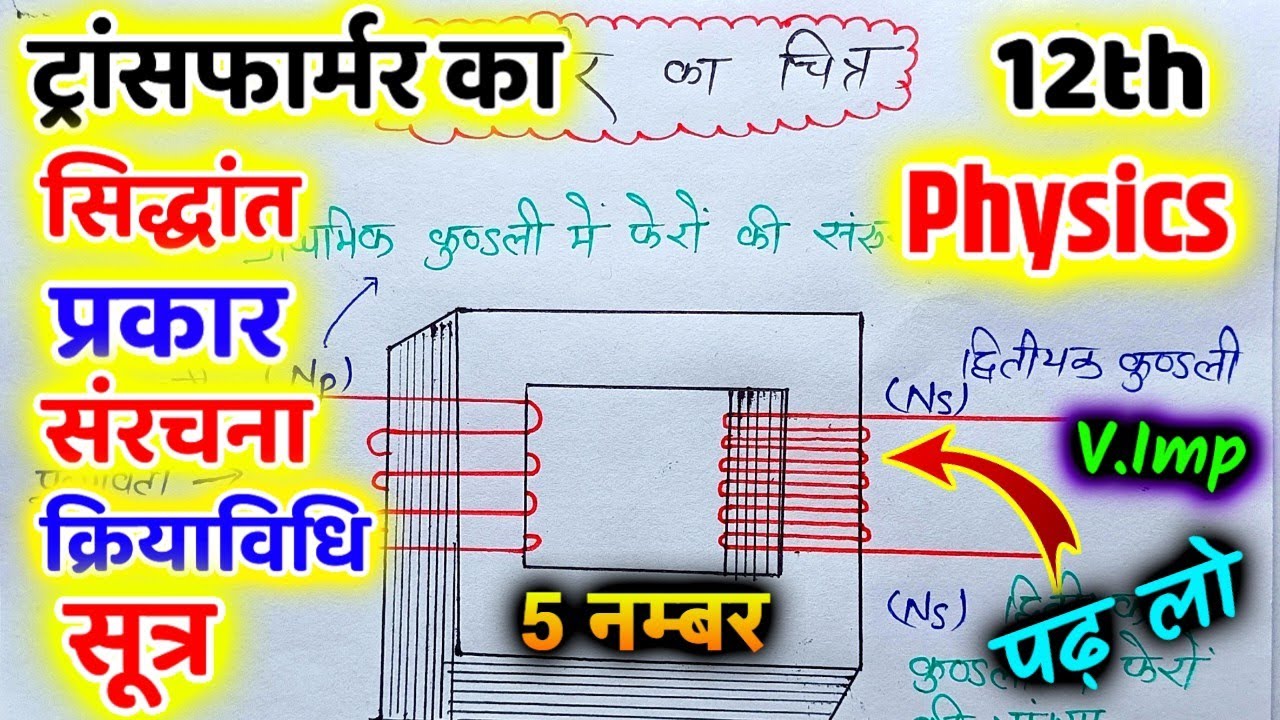 ट्रांसफार्मर का
र का चित्र
12th
Physics
सिद्धांत
प्रकार
संरचना
क्रियाविधि
सूत्र
कुण्डली में फेरों की
(Np)
द्वितीयक कुण्डली
(Ns)
V.Imp
5 नम्बर
पढ़ लो
(Ns)
फेरों